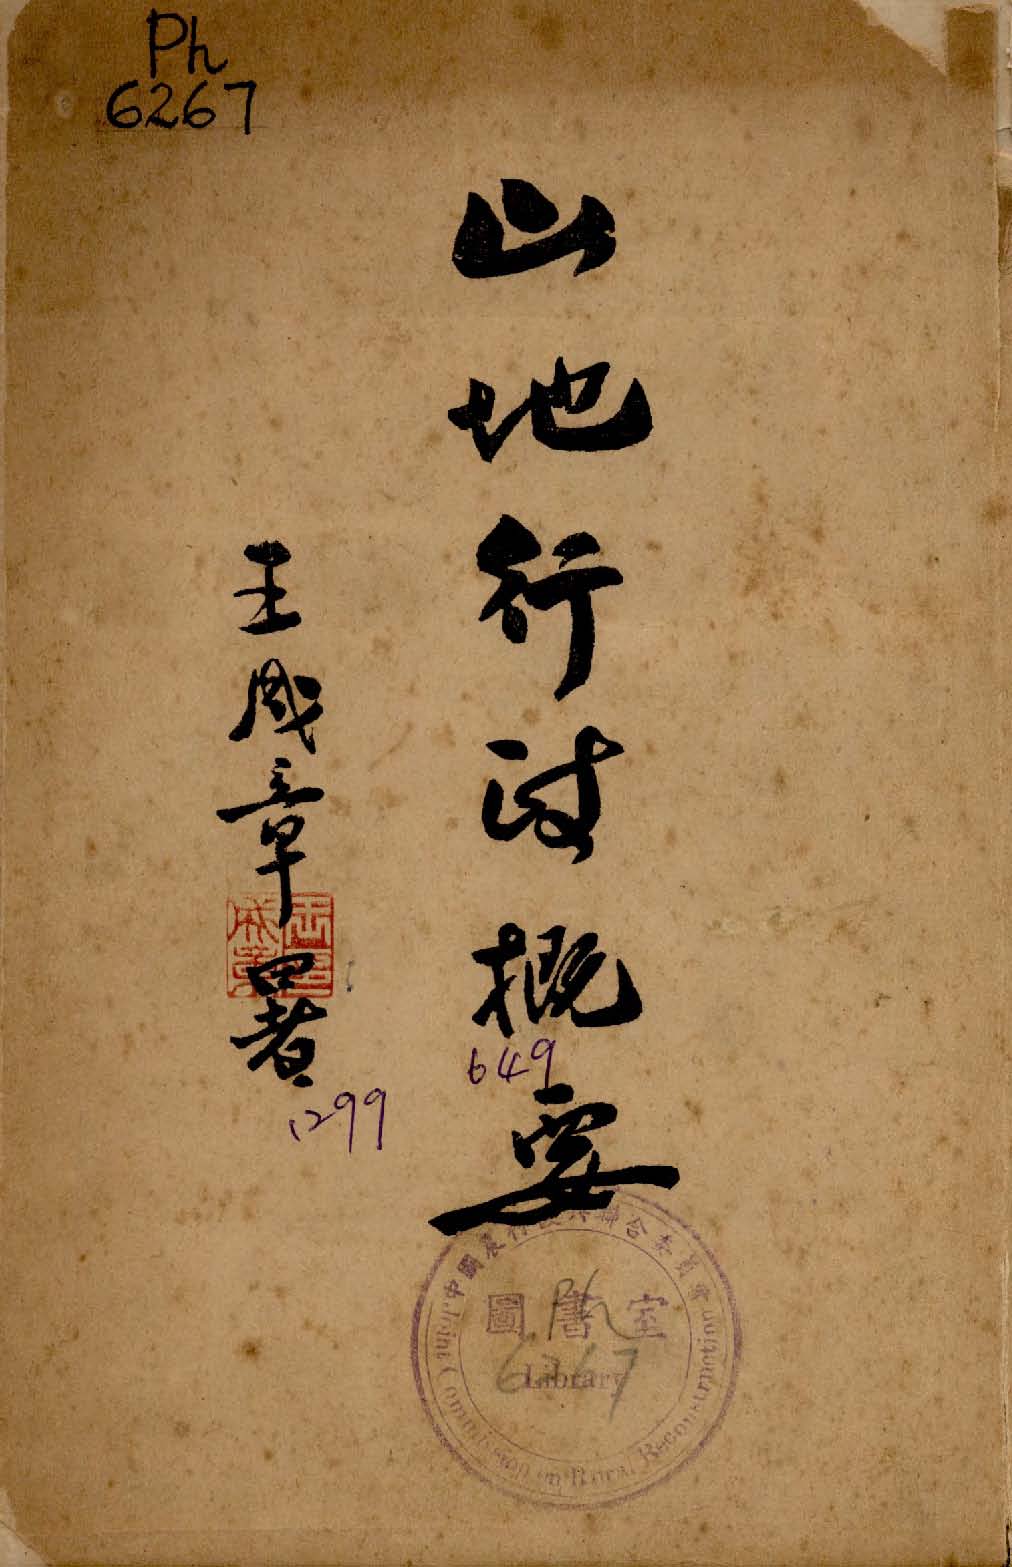 Ph
6267
山地行政概要
王成章署
王成章
649
1299
中國農村復興聯合委員會
圖書室
Ph
6267
Library
Joint Commission on Rural Reconstruction